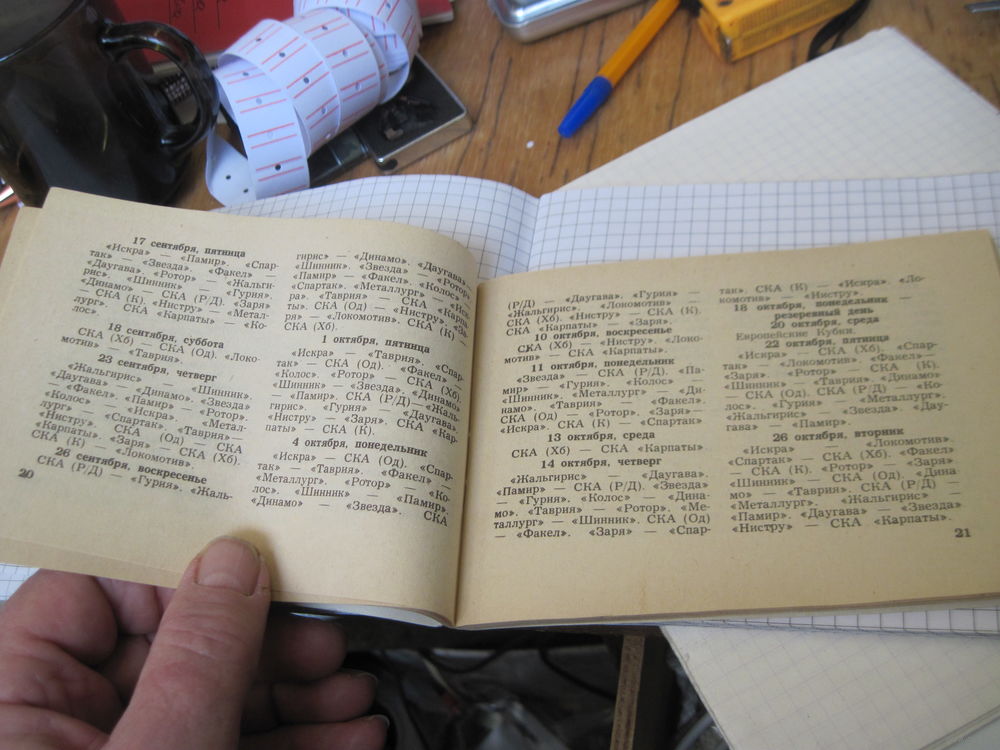 17 сентября, пятница
«Искра» — «Памир». «Спар-
так» — «Звезда». «Факел» —
«Даугава». «Ротор» — «Жальги-
рис». «Шинник» — «Гурия».
«Динамо» — СКА (Р/Д). «Заря»
— СКА (К). «Нистру» — «Метал-
лург». СКА «Карпаты» — «Ко-
лос».
18 сентября, суббота
СКА (Хб) — СКА (Од). «Локо-
мотив» — «Таврия».
23 сентября, четверг
«Жальгирис» — «Динамо».
«Даугава» — «Шинник». «Звезда»
— «Факел». «Памир» — «Ротор».
«Колос» — «Искра». «Метал-
лург» — «Спартак». «Таврия» —
«Нистру». СКА (Од) — СКА
«Карпаты». «Заря» — СКА (Хб).
СКА (К) — «Локомотив».
26 сентября, воскресенье
СКА (Р/Д) — «Гурия». «Жаль-
20
гирис» — «Динамо». «Даугава» —
«Шинник». «Звезда» — «Ротор».
«Памир» — «Факел». «Колос» —
«Спартак». «Металлург» — «Иск-
ра». «Таврия» — СКА «Карпа-
ты». СКА (Од) — «Нистру». «За-
ря» — «Локомотив». СКА (К) —
СКА (Хб).
1 октября, пятница
«Искра» — «Таврия». «Спар-
так» — СКА (Од). «Факел» —
«Колос». «Ротор» — СКА (Хб).
«Шинник» — «Звезда». «Динамо»
— «Памир». СКА (Р/Д) — «Жаль-
гирис». «Гурия» — «Даугава».
«Нистру» — «Заря». СКА «Кар-
паты» — СКА (К).
4 октября, понедельник
«Искра» — СКА (Од). «Спар-
так» — «Таврия». «Факел» —
«Металлург». «Ротор» — «Ко-
лос». «Шинник» — «Памир».
«Динамо» — «Звезда». СКА
(Р/Д) — «Даугава». «Гурия» —
«Жальгирис». «Локомотив» —
СКА (Хб). «Нистру» — СКА (К).
СКА «Карпаты» — «Заря».
10 октября, воскресенье
СКА (Хб) — «Нистру». «Локо-
мотив» — СКА «Карпаты».
11 октября, понедельник
«Звезда» — СКА (Р/Д). «Па-
мир» — «Гурия». «Колос» —
«Шинник». «Металлург» — «Ди-
намо». «Таврия» — «Факел».
СКА (Од) — «Ротор». «Заря» —
«Искра». СКА (К) — «Спартак»
13 октября, среда
СКА (Хб) — СКА «Карпаты»
14 октября, четверг
«Жальгирис» — «Даугава».
«Памир» — СКА (Р/Д). «Звезда»
— «Гурия». «Колос» — «Дина-
мо». «Таврия» — «Ротор». «Ме-
таллург» — «Шинник». СКА (Од)
— «Факел». «Заря» — «Спар-
так». СКА (К) — «Искра». «Ло-
комотив» — «Нистру».
18 октября, понедельник —
резервный день
20 октября, среда
Европейские Кубки.
22 октября, пятница
«Искра» — СКА (Хб). «Спар-
так» — «Локомотив». «Факел» —
«Заря» «Ротор» — СКА (К).
«Шинник» — «Таврия». «Динамо»
— СКА (Од). СКА (Р/Д) — «Ко-
лос». «Гурия» — «Металлург».
«Жальгирис» — «Звезда». «Дау-
гава» — «Памир».
26 октября, вторник
«Искра» — «Локомотив».
«Спартак» — СКА (Хб). «Факел»
— СКА (К). «Ротор» — «Заря»
«Шинник» — СКА (Од). «Дина
мо» — «Таврия». СКА (Р/Д) —
«Металлург». «Жальгирис» —
«Памир». «Даугава» — «Звезда»
«Нистру» — СКА «Карпаты».
21